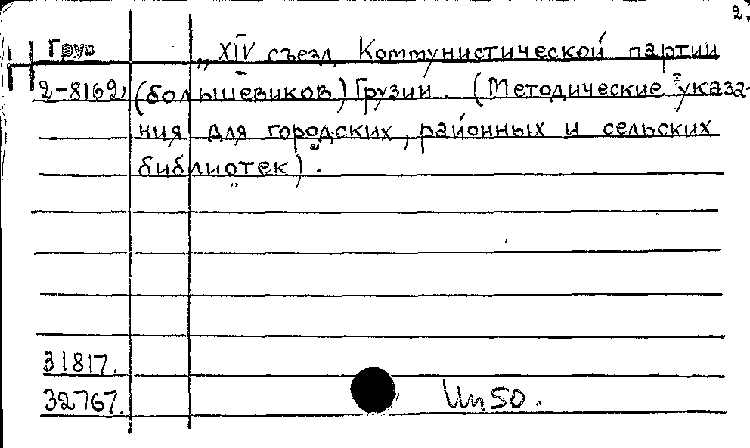 2.
Груз „XIV съезд Коммунистической партии
2-8162, (большевиков) Грузии. (Методические указа-
ния для городских, районных и сельских
библиотек).
31817.
32767. Ин 50.